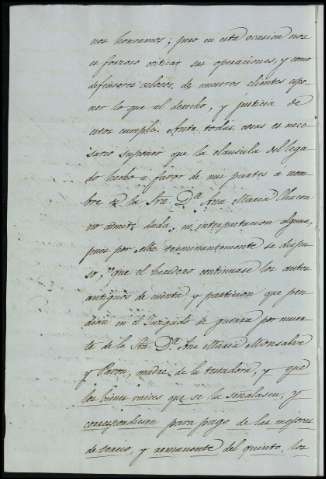 nos honramos; pero en esta ocasion nos
es forzoso criticar sus operaciones, y como
defensores celosos, de nuestros clientes espo-
ner lo que al derecho, y justicia de
estos cumple. Ante todas cosas es nece-
sario suponer que la clausula del lega-
do hecho a favor de mis partes a nom-
bre de la Sra. Dª Ana Maria
no admite duda, ni interpretacion alguna,
pues por ella terminantemente se dispu-
so, que el heredero continuase los autos
antiguos de cuenta y particion que pen-
dian en el Juzgado de guerra por muer-
te de la Sra Dª Ana Maria Monsalve
y madre de la testadora, y que
los bienes raices que se la señalasen, y
correspondiesen para pago de las mejoras
de tercio, y remanente del quinto, los